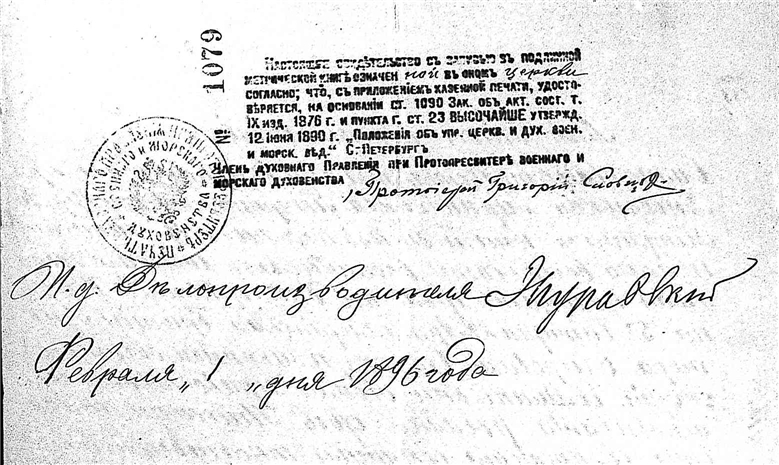 № 1079
Настоящее свидѣтельство съ записью въ подлинной
метрической книгѣ означенной въ ономъ церкви
согласно; что, съ приложеніемъ казенной печати, удосто-
вѣряется, на основаніи ст. 1090 Зак. объ акт. сост. т.
IX изд. 1876 г. и пункта г. ст. 23 ВЫСОЧАЙШЕ утвержд.
12 іюня 1890 г. „Положенія объ упр. церкв. и дух. воен.
и морск. вѣд.“ С.-Петербургъ
Членъ духовнаго Правленія при Протопресвитерѣ военнаго и
морскаго духовенства
Протоіерей Григорій Словцовъ
И. д. Дѣлопроизводителя Журавскій
Февраля „1„ дня 1896 года